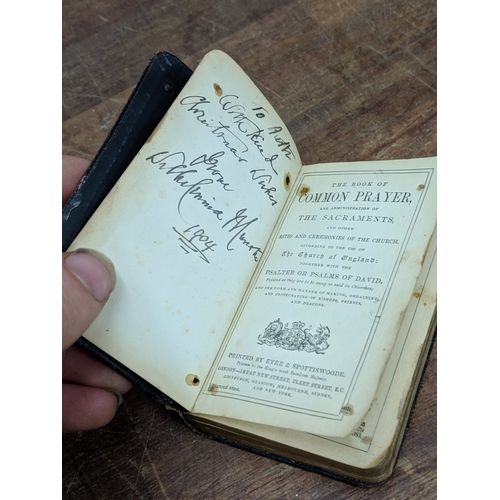 To Ruth
With Kind
Christmas Wishes
from
Wilhelmina
1904
THE BOOK OF
COMMON PRAYER,
AND ADMINISTRATION OF
THE SACRAMENTS,
AND OTHER
RITES AND CEREMONIES OF THE CHURCH,
ACCORDING TO THE USE OF
The Church of England:
TOGETHER WITH THE
PSALTER OR PSALMS OF DAVID,
Pointed as they are to be sung or said in Churches;
AND THE FORM AND MANNER OF MAKING, ORDAINING,
AND CONSECRATING OF BISHOPS, PRIESTS,
AND DEACONS.
PRINTED BY EYRE & SPOTTISWOODE,
Printers to the King's most Excellent Majesty.
LONDON—GREAT NEW STREET, FLEET STREET, E.C.
EDINBURGH, GLASGOW, MELBOURNE, SYDNEY,
AND NEW YORK.